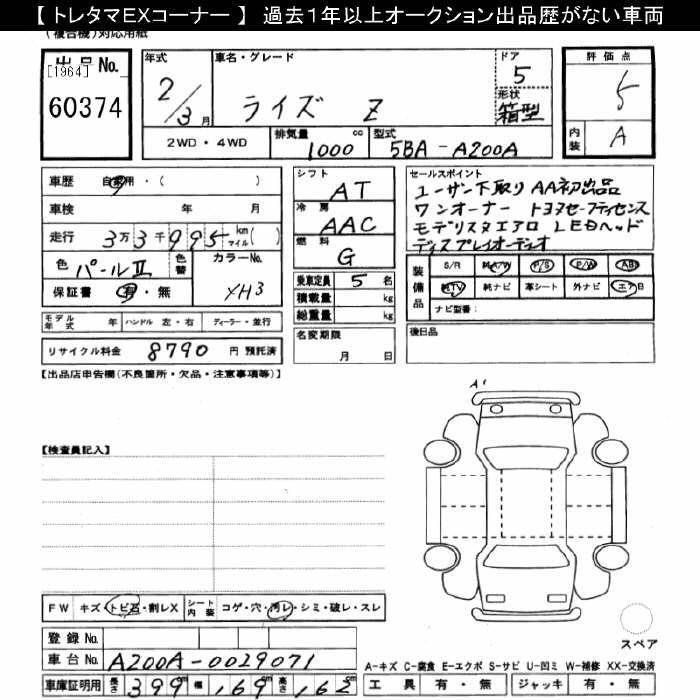 【 トレタマEXコーナー 】 過去1年以上オークション出品歴がない車両
(複合機)対応用紙
出品No.
[1964]
60374
年式
2/3月
車名・グレード
ライズ Z
ドア
5
形状
箱型
評価点
5
内装
A
2WD・4WD
排気量
1000 cc
型式
5BA-A200A
車歴 自家用・( )
車検 年 月
走行 3万3千995 km マイル( )
色 パールⅡ
色替
カラーNo.
XH3
保証書 有・無
モデル年式 年 ハンドル 左・右 ディーラー・並行
リサイクル料金 8790 円 預託済
シフト
AT
冷房
AAC
燃料
G
乗車定員 5 名
積載量 kg
総重量 kg
名変期限
月 日
セールスポイント
ユーザー下取り AA初出品
ワンオーナー トヨタセーフティセンス
モデリスタエアロ LEDヘッド
ディスプレイオーディオ
装備品
S/R 純A/W P/S P/W ABS
純TV 純ナビ 革シート 外ナビ エアB
ナビ型番:
後日品
【出品店申告欄(不良箇所・欠品・注意事項等)】
A1
【検査員記入】
FW キズ・トビ石・割レX シート内装 コゲ・穴・汚レ・シミ・破レ・スレ
登録No.
車台No. A200A-0029071
車庫証明用 長さ 399 幅 169 高さ 162
スペア
A-キズ C-腐食 E-エクボ S-サビ U-凹ミ W-補修 XX-交換済
工具 有・無 ジャッキ 有・無